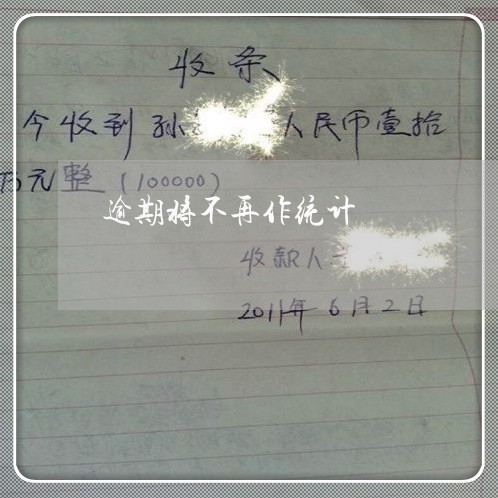 收条
今收到孙 人民币壹拾
万元整（100000）
逾期将不再作统计
收款人
2011年6月2日